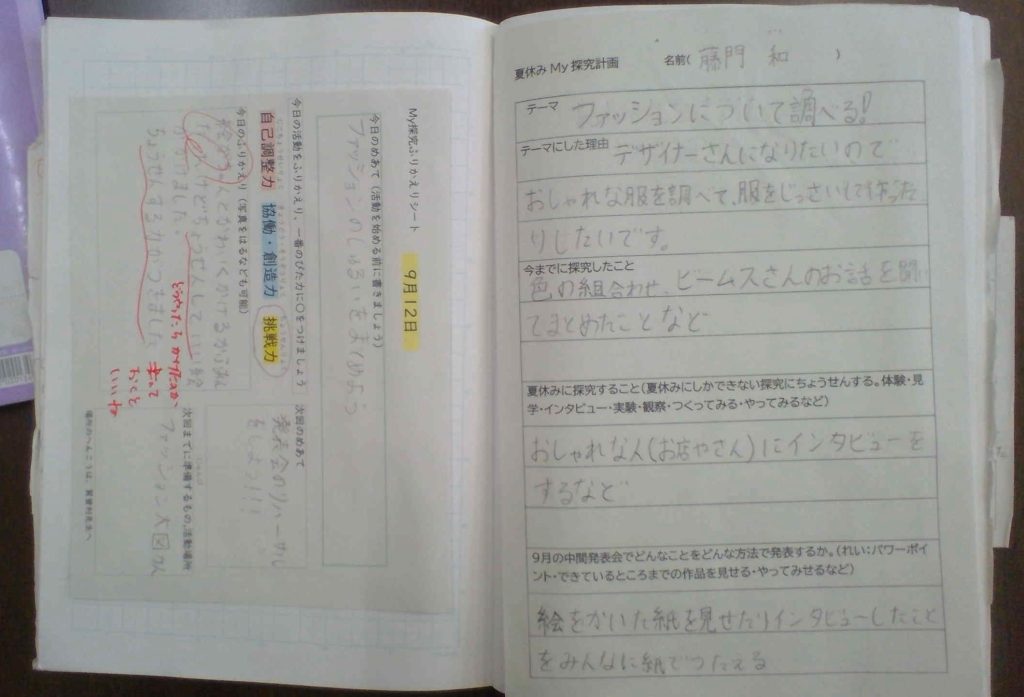 My探究ふりかえりシート
9月12日
今日のめあて（活動を始める前に書きましょう）
ファッションのしゅるいをまとめよう
今日の活動をふりかえり、一番のびた力に○をつけましょう
自己調整力 協働・創造力 挑戦力
今日のふりかえり（写真をはるなども可能）
とかわいくかけるか
けどちょうせんして 絵
かけました。
ちょうせんする力がつきました
どうやったら かけたのか
書いて
おくと
いいね
次回のめあて
発表会のリハーサル
をしよう!!!
次回までに準備するもの、活動場所
ファッション大図かん
場所のへんこうは、
夏休み My 探究計画 名前( 藤門 和 )
テーマ ファッションについて調べる!
テーマにした理由 デザイナーさんになりたいので
おしゃれな服を調べて、服をじっさいに作った
りしたいです。
今までに探究したこと
色の組合わせ、ビームスさんのお話を聞い
てまとめたことなど
夏休みに探究すること（夏休みにしかできない探究にちょうせんする。体験・見
学・インタビュー・実験・観察・つくってみる・やってみるなど）
おしゃれな人(お店やさん)にインタビューを
するなど
9月の中間発表会でどんなことをどんな方法で発表するか。（れい：パワーポイ
ント・できているところまでの作品を見せる・やってみせるなど）
絵をかいた紙を見せたりインタビューしたこと
をみんなに紙でつたえる